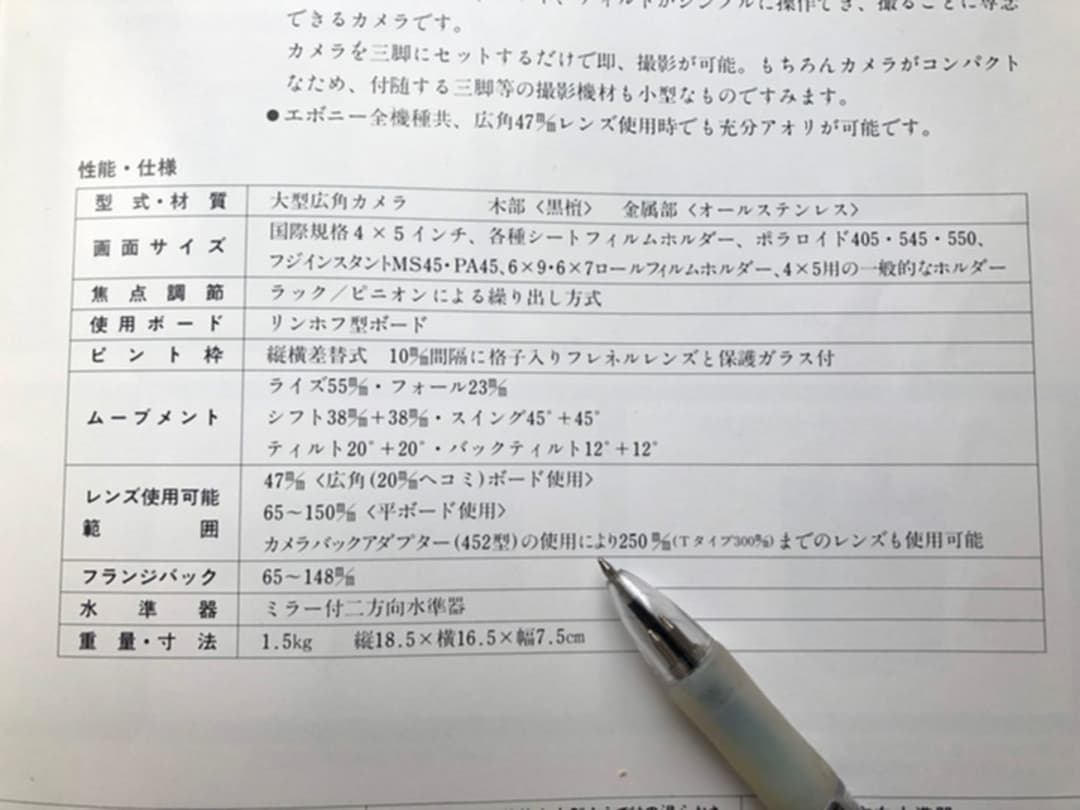 ティルトがシンプルに操作でき、撮ることに専念
できるカメラです。
カメラを三脚にセットするだけで即、撮影が可能。もちろんカメラがコンパクト
なため、付随する三脚等の撮影機材も小型なものですみます。
●エボニー全機種共、広角47㎜レンズ使用時でも充分アオリが可能です。
性能・仕様
型式・材質 大型広角カメラ 木部〈黒檀〉 金属部〈オールステンレス〉
画面サイズ 国際規格4×5インチ、各種シートフィルムホルダー、ポラロイド405・545・550、
フジインスタントMS45・PA45、6×9・6×7ロールフィルムホルダー、4×5用の一般的なホルダー
焦点調節 ラック／ピニオンによる繰り出し方式
使用ボード リンホフ型ボード
ピント枠 縦横差替式 10㎜間隔に格子入りフレネルレンズと保護ガラス付
ムーブメント ライズ55㎜・フォール23㎜
シフト38㎜+38㎜・スイング45°+45°
ティルト20°+20°・バックティルト12°+12°
レンズ使用可能範囲 47㎜〈広角(20㎜ヘコミ)ボード使用〉
65～150㎜〈平ボード使用〉
カメラバックアダプター(452型)の使用により250㎜(Tタイプ300㎜)までのレンズも使用可能
フランジバック 65～148㎜
水準器 ミラー付二方向水準器
重量・寸法 1.5kg 縦18.5×横16.5×幅7.5cm